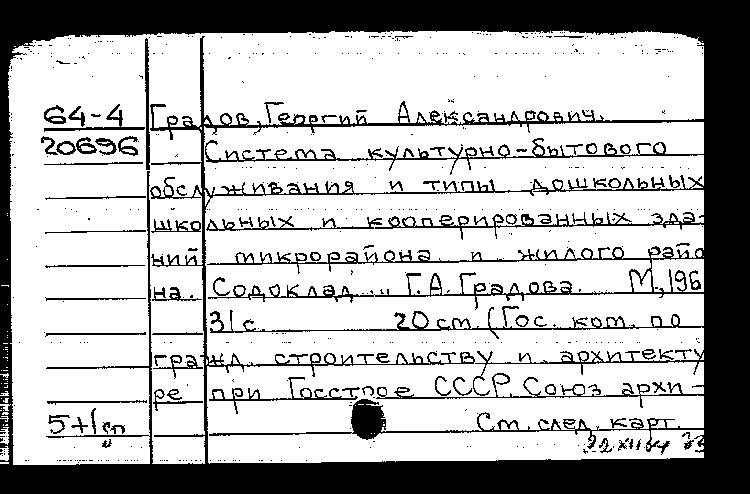 64-4 Градов, Георгий Александрович.
20696 Система культурно-бытового
обслуживания и типы дошкольных
школьных и кооперированных зда-
ний микрорайона и жилого райо
на. Содоклад .. Г.А. Градова. М., 196
31 с. 20 см. (Гос. ком. по
гражд. строительству и архитекту
ре при Госстрое СССР. Союз архи-
5+1сп См. след. карт.
22 XII 64